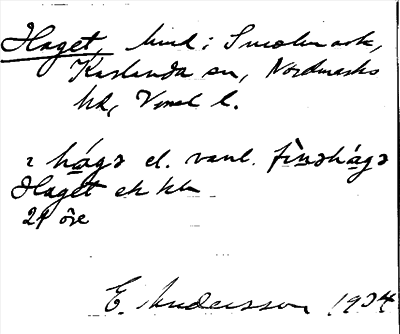 Haget, hmd i Smolmark,
Karlanda sn, Nordmarks
hd, Vrml l.
2 hágə el. vanl. fìnəhágə
Haget ek
29 öre
E. Andersson 1934